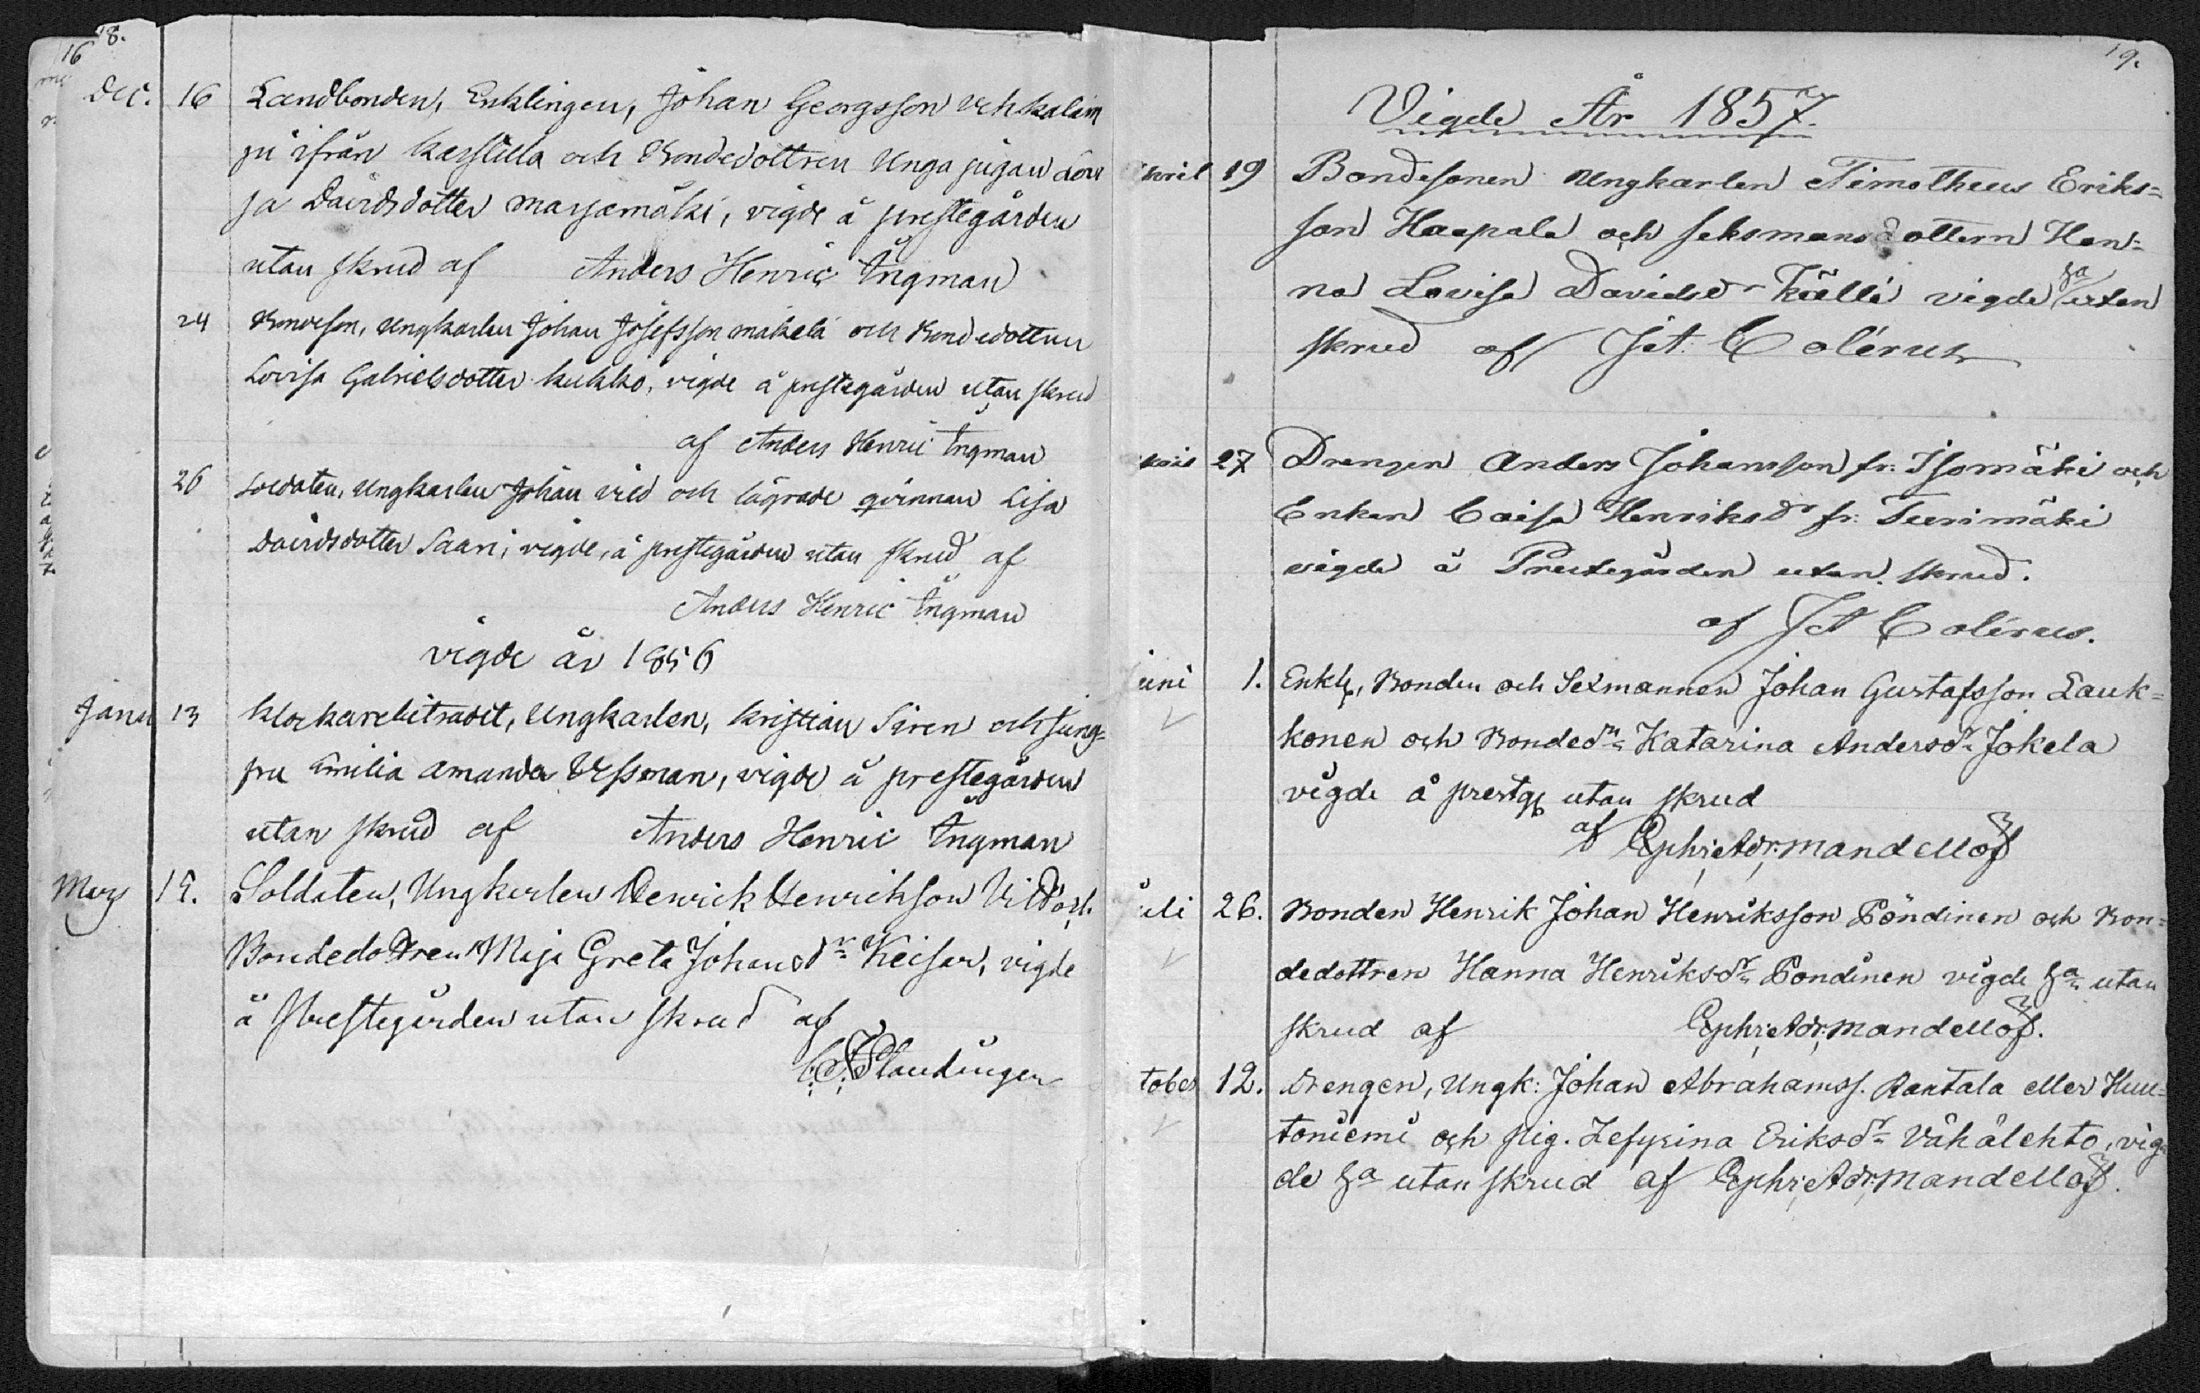 18.
16
Dec. 16 Landbonden, Enklingen, Johan Georgsson Vehkalam
pi ifrån Karstula och Bondedottren Unga pigan Lovi
sa Davidsdotter Marjamäki, vigde å prestegården
utan skrud af Anders Henric Ingman
24 Bondeson, Ungkarlen Johan Josefsson Mäkelä och Bondedottren
Lovisa Gabrielsdotter Kukko, vigde å prestegården utan skrud
af Anders Henric Ingman
26 Soldaten, Ungkarlen Johan Vild och lägrade qvinnan Lisa
Davidsdotter Saari, vigde, å prestegården utan skrud af
Anders Henric Ingman
vigde år 1856
Janu 13 Klockarebiträdet, Ungkarlen, Kristian Siren och Jung=
fru Emilia Amanda Essman, vigde å prestegården
utan skrud af Anders Henric Ingman
Mars 15. Soldaten, Ungkarlen Henrick Henrichson Vild och
Bondedottren Maja Greta Johansdr Keisar, vigde
å Prestegården utan skrud af
C. F. Slandinger
19.
Vigde År 1857.
April 19 Bondesonen Ungkarlen Timotheus Eriks=
son Haapala och Seksmansdottern Han=
na Lovisa Davidsdr Källi vigde ha utan
skrud af Jt. Colérus
27 Drengen Anders Johansson fr: Isomäki och
Enkan Caisa Henriksdr fr: Turimäki
vigde å Prestegården utan skrud.
af Jt Colérus.
uni 1. Enkl, Bonden och Sexmannen Johan Gustafsson Lauk=
konen och Bondedr Katarina Andersdr Jokela
vigde å prestg utan skrud
af Ephr: Adr: Mandellöf
uli 26. Bonden Henrik Johan Henriksson Pöndinen och Bon=
dedottren Hanna Henriksdr Pondinen vigde ha utan
skrud af Ephr: Adr: Mandellöf.
tober 12. Drengen, Ungk: Johan Abrahamss. Rantala eller Huu=
toniemi och pig. Zefyrina Eriksdr Vähälehto, vig=
de ha utan skrud af Ephr: Adr: Mandellöf.